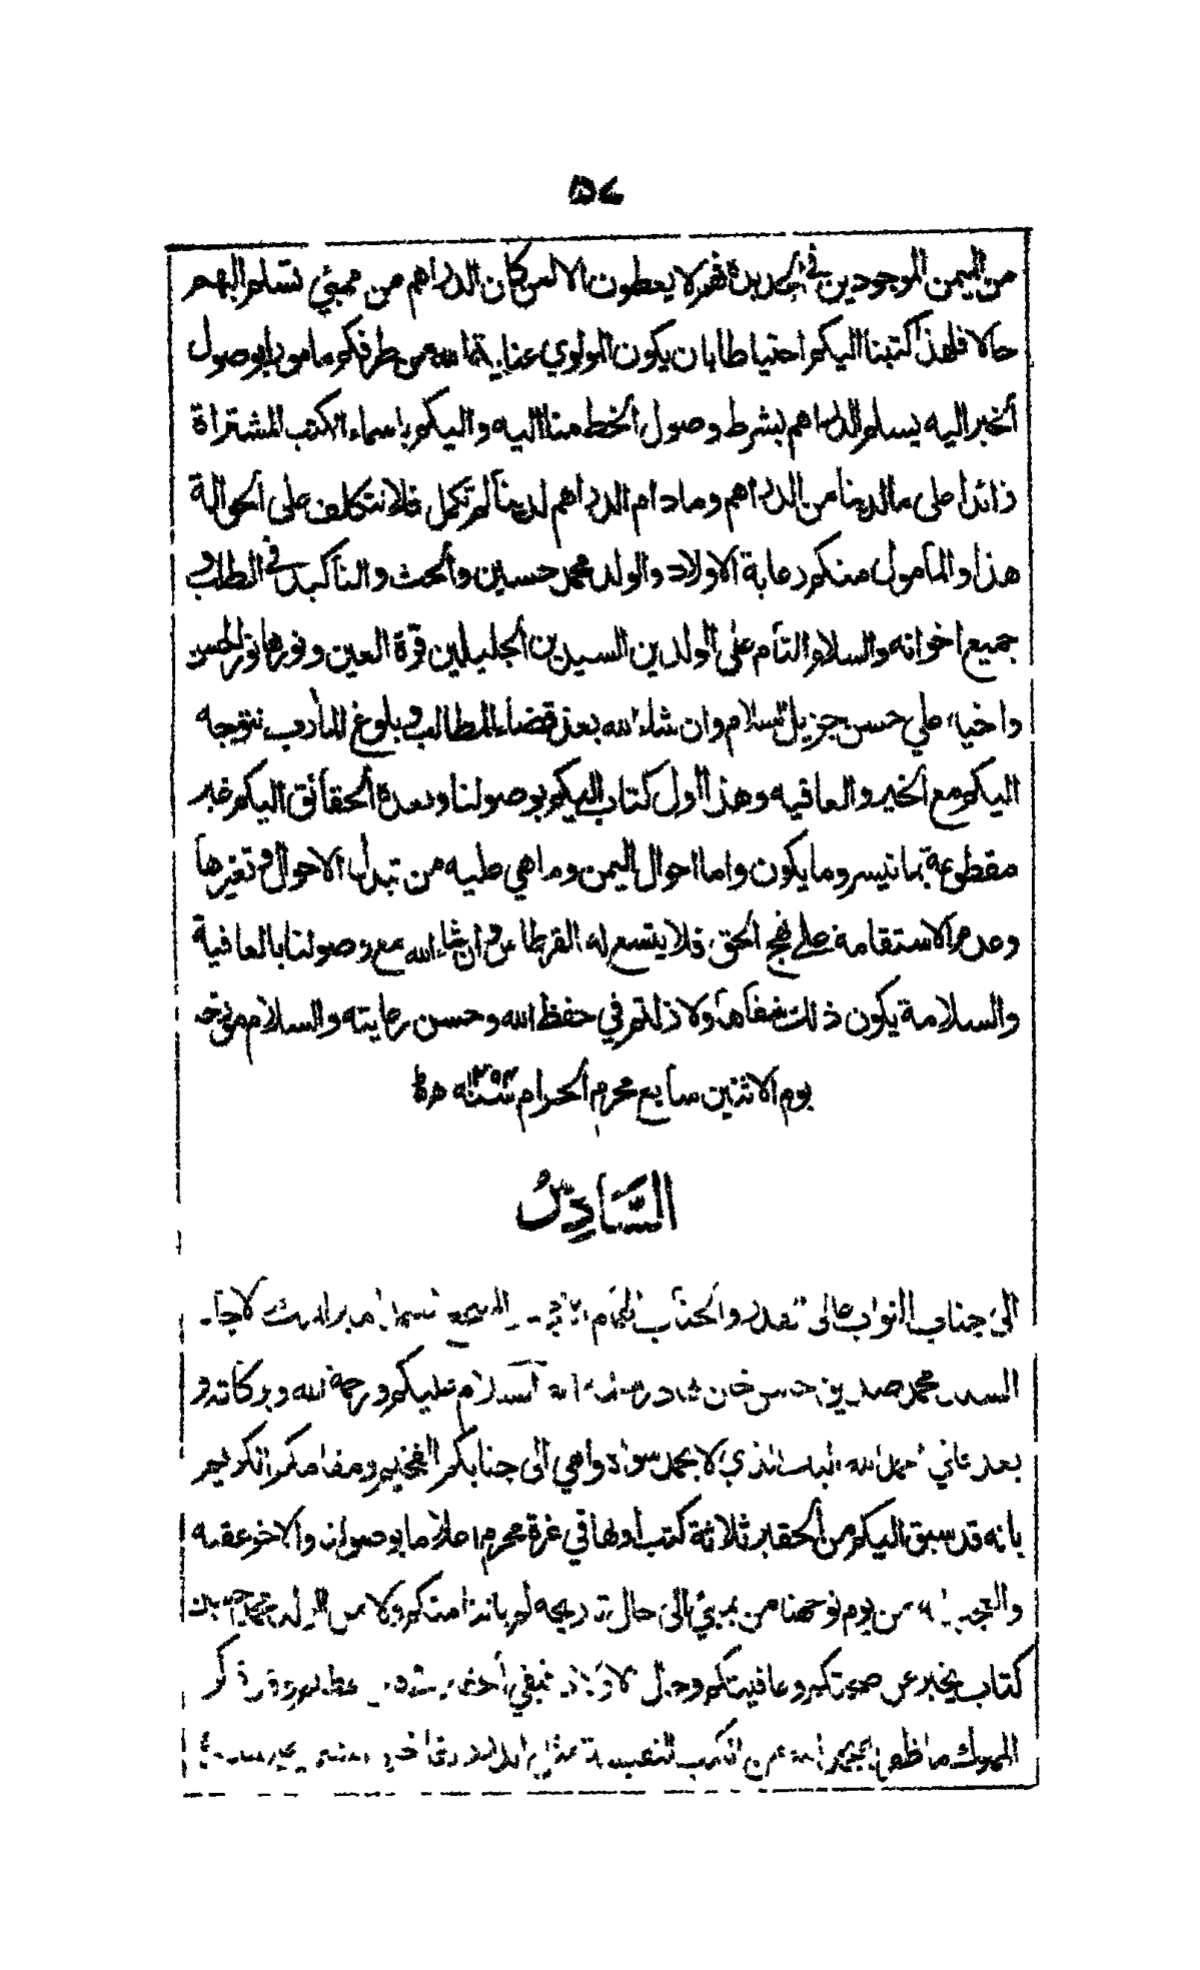 ٥٧
من اليمن الموجودين في الحديدة فهم لا يعطون الا لمن كان الدراهم من ممبئي تسلم اليهم
حالا فلهذا كتبنا اليكم احتياطا بان يكون المولوي عناية الله من طرفكم مامورا بوصول
الخبر اليه يسلم الدراهم بشرط وصول الخط منا اليه واليكم باسماء الكتب المشتراة
زائدا على ما لدينا من الدراهم وما دام الدراهم لدينا لم تكمل فلا نتكلف على الحوالة
هذا والمأمول منكم رعاية الاولاد والولد محمد حسين والحث والتأكيد في الطلب و
جميع اخوانه والسلام التام على الولدين السيدين الجليلين قرة العين ونورها نور الحسن
واخيه علي حسن جزيل السلام وان شاء الله بعد قضاء المطالب وبلوغ المأرب نتوجه
اليكم مع الخير والعافيه وهذا اول كتاب اليكم بوصولنا وبعده الحقائق اليكم غير
مقطوعة بما تيسر وما يكون واما احوال اليمن وما هي عليه من تبدل الاحوال وتغيرها
وعدم الاستقامة على نهج الحق فلا يتسع له القرطاس وان شاء الله مع وصولنا بالعافية
والسلامة يكون ذلك شفاها ولا زلتم في حفظ الله وحسن رعايته والسلام مورخه
يوم الاثنين سابع محرم الحرام سنة ١٢٩٣ ه
السَّادِسُ
الى جناب النواب عالى القدر والجناب
السيد محمد صديق حسن خان بهادر السلام عليكم ورحمة الله وبركاته و
بعد فاني احمد الله اليك الذي لا يحمد سواه وانهي الى جنابكم الفخيم ومقامكم الكريم
بانه قد سبق اليكم من الحقير ثلاثة كتب اولها في غرة محرم اعلاما بوصولنا والاخر عقبه
والعجب انه من يوم توجهنا من بمبئي الى حال تاريخه لم ياتنا منكم ولا من الولد محمد حسين
كتاب يخبر عن صحتكم وعافيتكم وحال الاولاد
المملوك ما ظفر من الكتب النفيسة